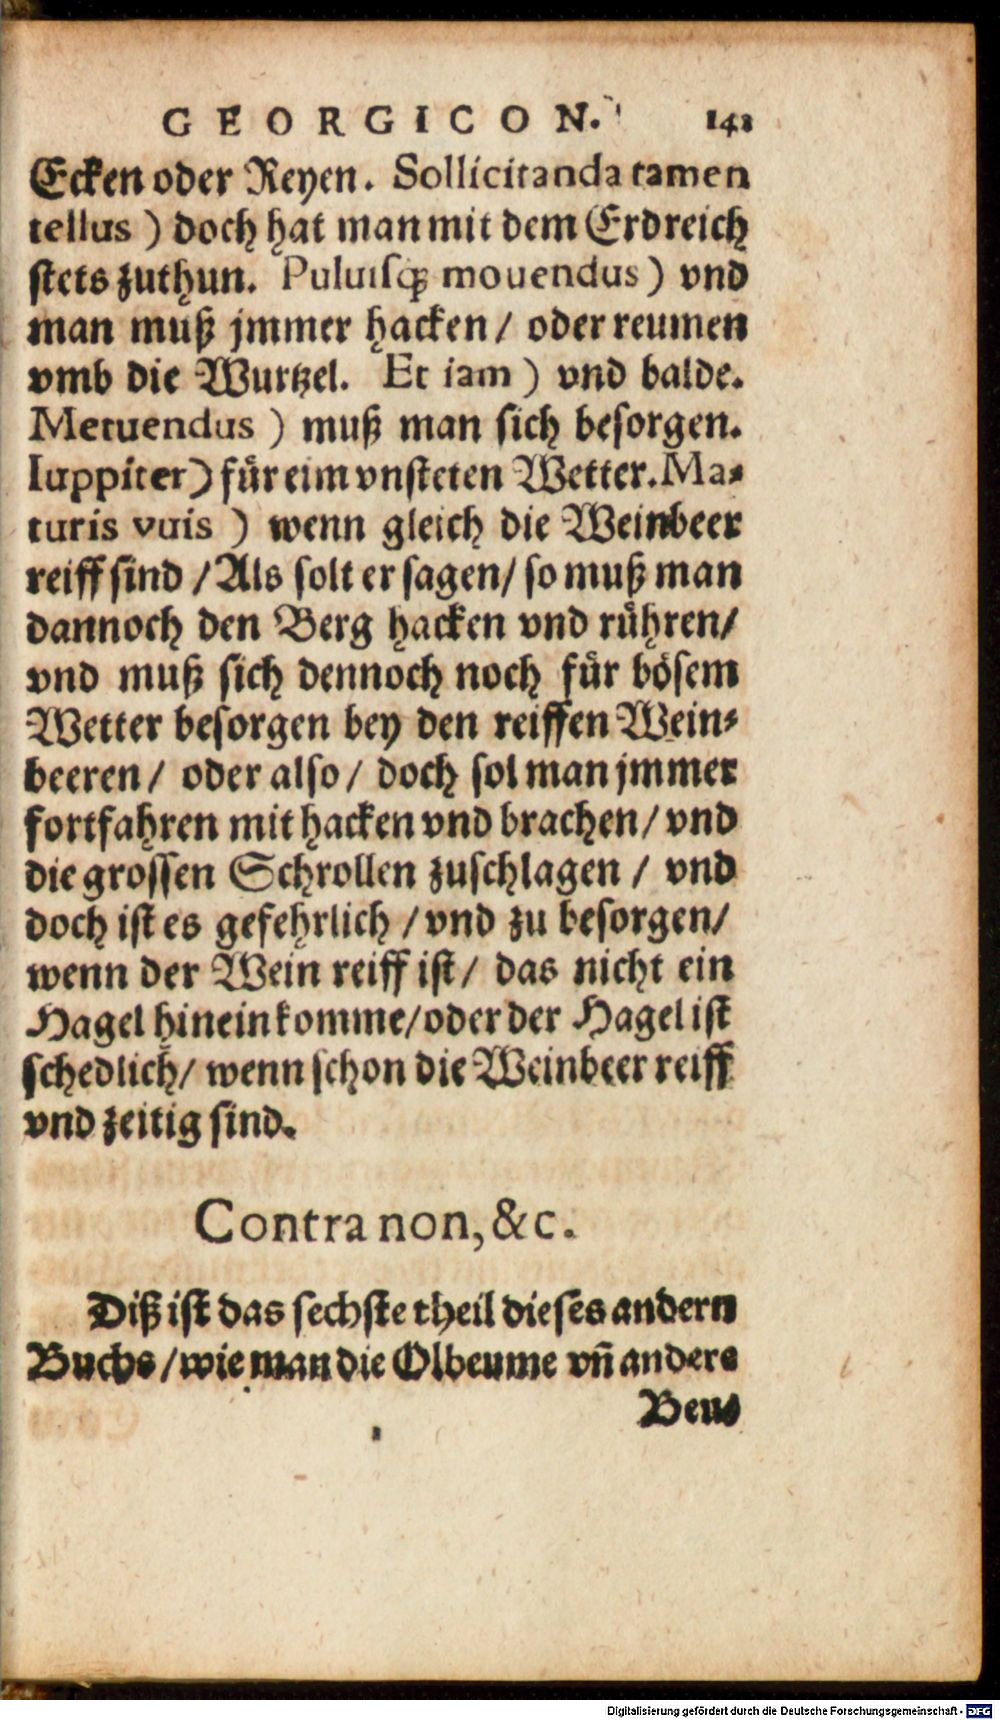 GEORGICON. 141
Ecken oder Reyen. Sollicitanda tamen
tellus ) doch hat man mit dem Erdreich
stets zuthun. Puluisq; mouendus ) vnd
man muß jmmer hacken / oder reumen
vmb die Wurtzel. Et iam ) vnd balde.
Metuendus ) muß man sich besorgen.
Iuppiter) für eim vnsteten Wetter. Ma-
turis vuis ) wenn gleich die Weinbeer
reiff sind / Als solt er sagen / so muß man
dannoch den Berg hacken vnd rühren /
vnd muß sich dennoch noch für bösem
Wetter besorgen bey den reiffen Wein-
beeren / oder also / doch sol man jmmer
fortfahren mit hacken vnd brachen / vnd
die grossen Schrollen zuschlagen / vnd
doch ist es gefehrlich / vnd zu besorgen /
wenn der Wein reiff ist / das nicht ein
Hagel hinein komme / oder der Hagel ist
schedlich / wenn schon die Weinbeer reiff
vnd zeitig sind.
Contra non, &c.
Diß ist das sechste theil dieses andern
Buchs / wie man die Olbeume vñ andere
Beu-
Digitalisierung gefördert durch die Deutsche Forschungsgemeinschaft - DFG